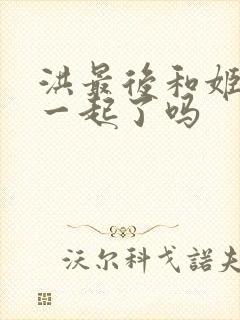 洪最後和姬
一起了吗
沃尔科戈諾夫